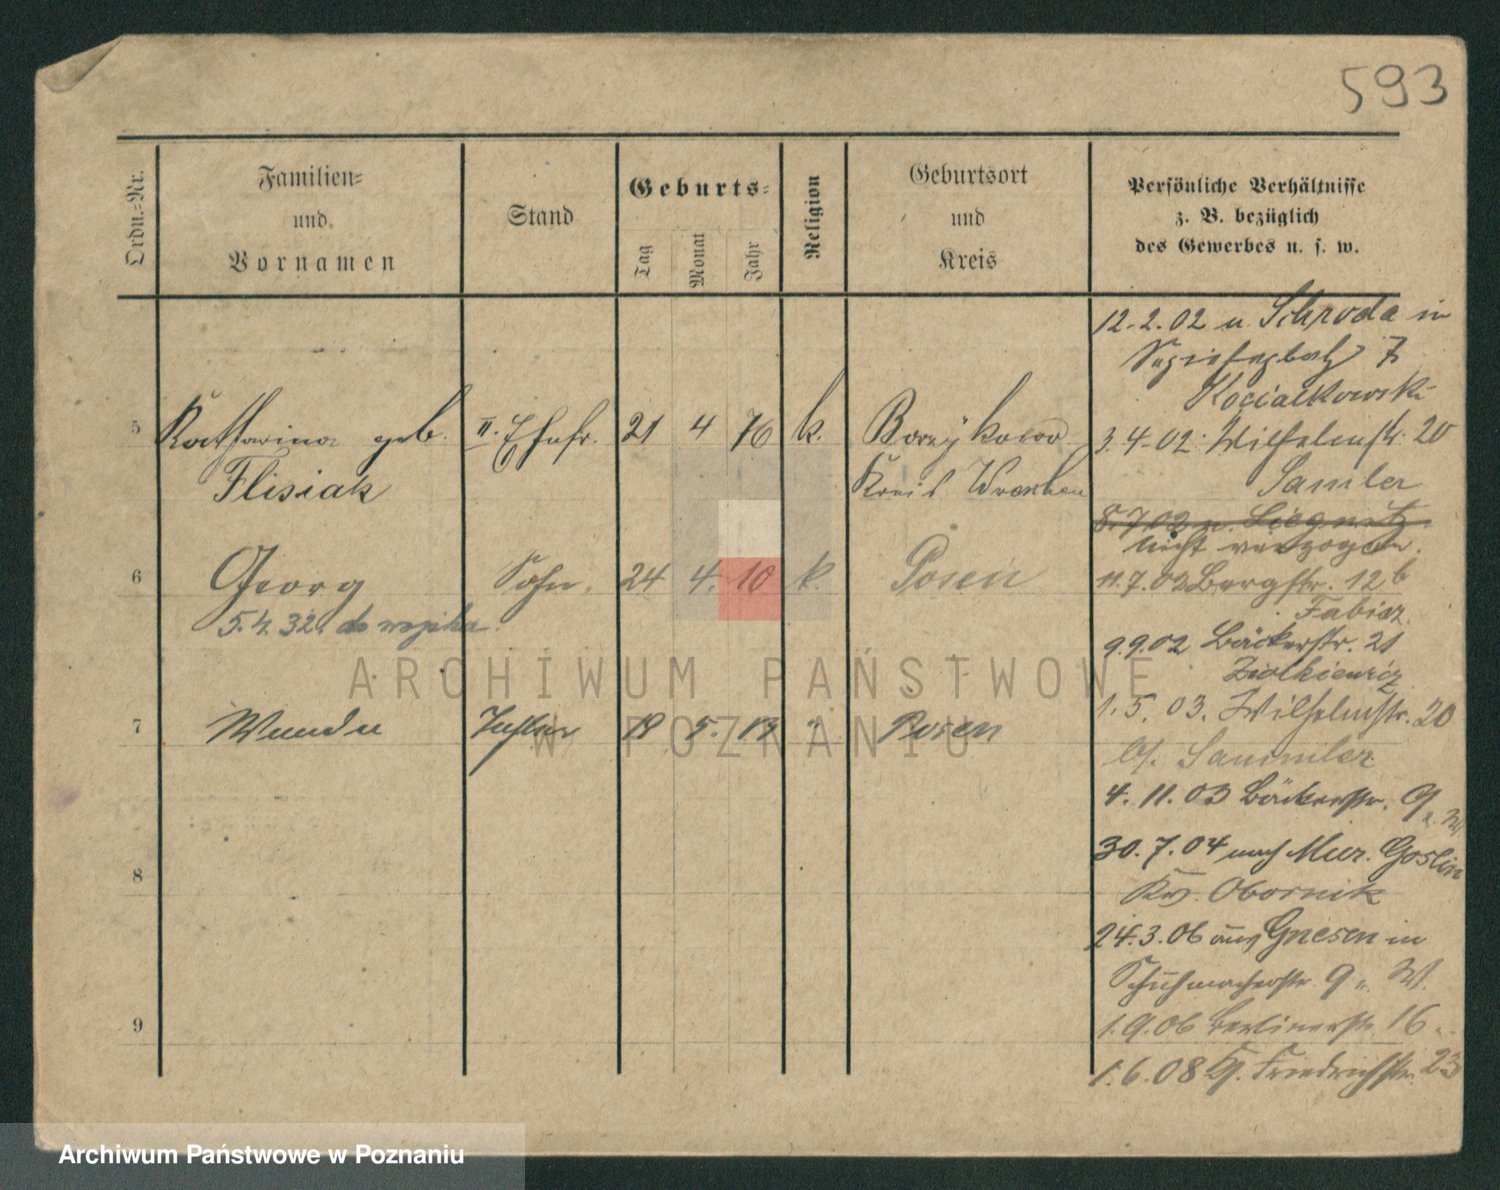 593
Ordn.-Nr.
Familien-
und
Vornamen
Stand
Geburts-
Tag
Monat
Jahr
Religion
Geburtsort
und
Kreis
Persönliche Verhältnisse
z. B. bezüglich
des Gewerbes u. s. w.
12.2.02 u. Schroda in
7
Kocialkowski
5 Katharina geb. II. Ehefr. 21 4 76 k. Borzykowo
Flisiak Kreis Wreschen
3.4.02 Wilhelmstr. 20
Samler
8.7.02 n. Liegnitz
nicht verzogen.
6 Georg Sohn 24 4. 10 k. Posen
5.4.32. do wojska
11.7.02 Bergstr. 12b
Fabisz.
9.9.02 Bäckerstr. 21
Ziolkiewicz
7 Wanda Tochter 18 5. 13 " Posen
1.5.03. Wilhelmstr. 20
b/. Sammler
4.11.03 Bäckerstr. 9
30.7.04 nach Mur. Goslin
8
Kr. Obornik
24.3.06 aus Gnesen in
Schuhmacherstr. 9 W.
9
1.9.06 Berlinerstr. 16
1.6.08 Friedrichstr. 23
ARCHIWUM PAŃSTWOWE
W POZNANIU
Archiwum Państwowe w Poznaniu